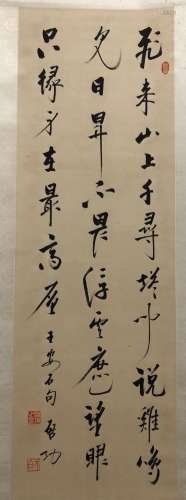 飛来山上千尋塔聞說雞鳴
見日昇不畏浮雲遮望眼
只緣身在最高層 王安石句 啟功